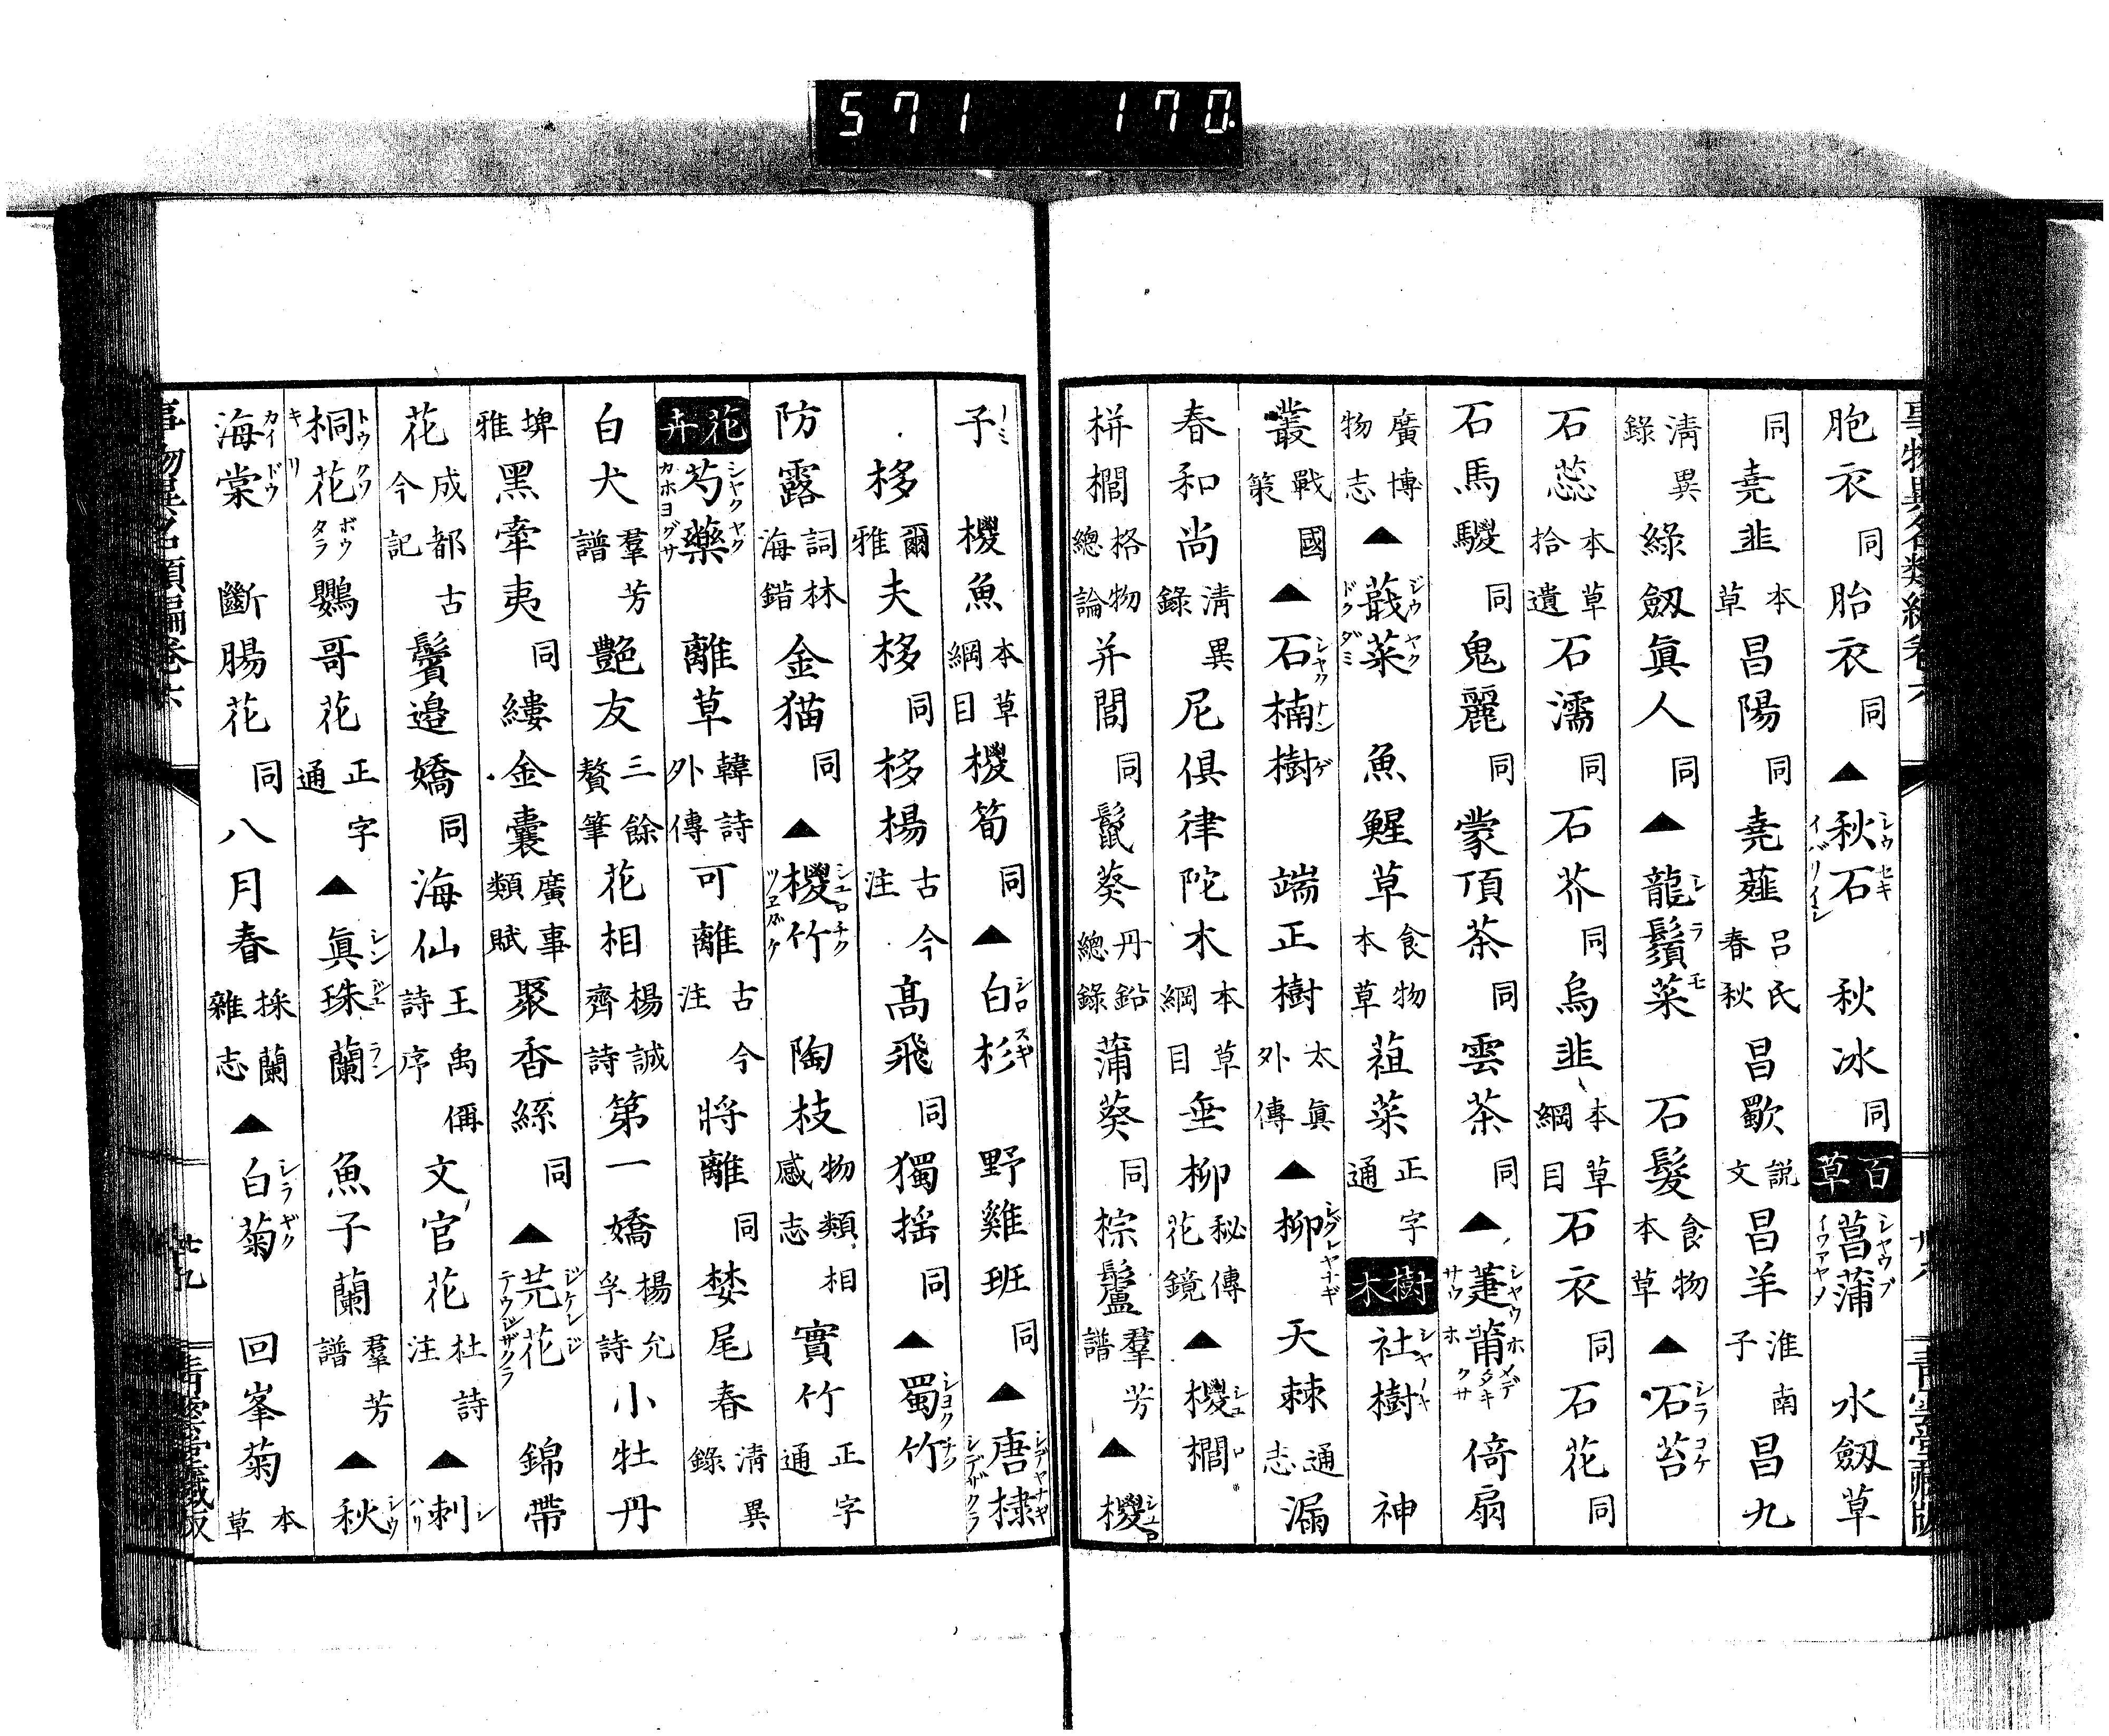 571 170
胞衣同胎衣同▲秋石 秋冰同百草菖蒲 水劔草
同堯韭本草昌陽同堯薤呂氏春秋昌歜説文昌羊淮南子昌九
清異錄綠劔眞人同▲龍鬚菜 石髮食物本草▲石苔
石蕊本草拾遺石濡同石芥同烏韭本草綱目石衣同石花同
石馬騣同鬼麗同蒙頂茶同雲茶同▲萐莆 倚扇
廣博物志▲蕺菜 魚鯹草食物本草葅菜正字通樹木社樹 神
叢戰國策▲石楠樹 端正樹太眞外傳▲柳 天棘通志漏
春和尚清異錄尼俱律陀木本草綱目垂柳秘傳花鏡▲椶櫚
栟櫚格物總論并閭同鬣葵丹鉛總錄蒲葵同棕鬛羣芳譜▲椶
子 椶魚本草綱目椶筍同▲白杉 野雞班同▲唐棣
栘爾雅夫栘同栘楊古今注高飛同獨搖同▲蜀竹
防露詞林海錯金猫同▲椶竹 陶枝物類相感志實竹正字通
花卉芍藥 離草韓詩外傳可離古今注將離同婪尾春清異錄
白犬羣芳譜艷友三餘贅筆花相楊誠齊詩第一嬌楊允孚詩小牡丹
埤雅黑牽夷同縷金囊廣事類賦聚香絲同▲芫花 錦帶
花成都古今記鬢邉嬌同海仙王禹偁詩序文官花杜詩注▲刺
桐花 鸚哥花正字通▲眞珠蘭 魚子蘭羣芳譜▲秋
海棠 斷腸花同八月春採蘭雜志▲白菊 回峯菊本草